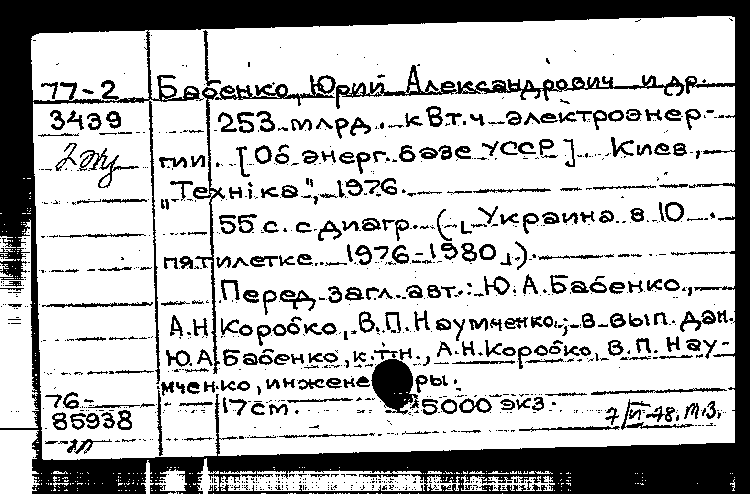 77-2 Бабенко, Юрий Александрович и др.
3439 253 млрд. кВт.ч электроэнер-
2 экз гии. [Об энерг. базе УССР]. Киев,
"Технiка", 1976.
55 с. с диагр. (Украина в 10
пятилетке 1976-1980).
Перед загл. авт.: Ю.А.Бабенко,
А.Н.Коробко, В.П.Наумченко; в вып. дан.
Ю.А.Бабенко, к.т.н., А.Н.Коробко, В.П.Нау-
мченко, инженеры.
76- 17см. 5000 экз.
85938 7/VI-78. М.З.